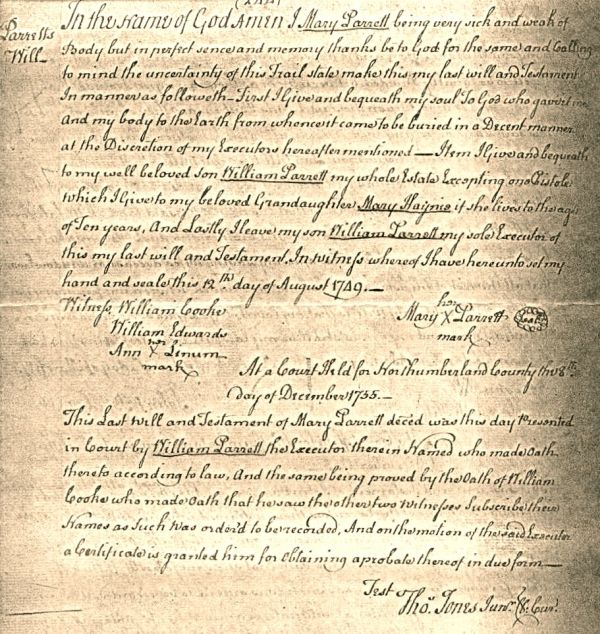 Parretts
Will
In the Name of God Amen I Mary Parrett being very sick and weak of
Body but in perfect sence and memory thanks be to God for the same and Calling
to mind the uncertainty of this Frail state make this my last will and Testament
In manner as followeth – First I Give and bequeath my soul To God who gave it me
And my body to the Earth from whence it came to be buried in a Decent manner
at the Discretion of my Executors hereafter mentioned — Item I Give and bequeath
to my well beloved son William Parrett my whole Estate Excepting one Pistole
which I Give to my beloved Grandaughter Mary Haynie if she lives to the age
of Ten years, And Lastly I leave my son William Parrett my sole Executor of
this my last will and Testament. In witness whereof I have hereunto set my
hand and seale this 12th. day of August 1749. —
Witness William Cooke
William Edwards
her
Ann X Linum
mark
her
Mary X Parrett Seal
mark
At a Court Held for Northumberland County the 8th.
day of December 1755. —
This Last will and Testament of Mary Parrett deced was this day Presented
in Court by William Parrett the Executor therein Named who made Oath
thereto according to law, And the same being proved by the Oath of William
Cooke who made Oath that he saw the other two Witnesses Subscribe their
Names as Such was order'd to be recorded, And on the motion of the said Executor
a Certificate is granted him for Obtaining a probate thereof in due form —
Test
Tho. Jones Junr. Cur.